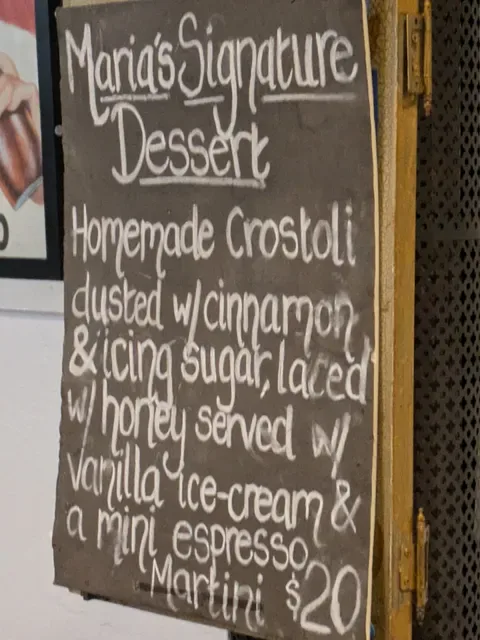 Maria's Signature
Dessert
Homemade Crostoli
dusted w/ cinnamon
& icing sugar, laced
w/ honey served w/
vanilla ice-cream &
a mini espresso
Martini $20